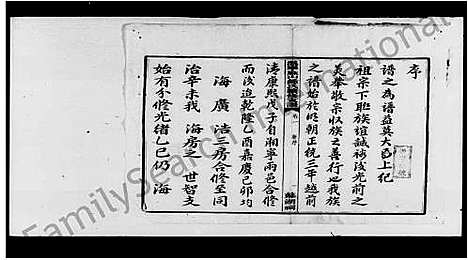 序
譜之為譜益莫大焉上紀
祖宗下聯族誼誠裕後光前之
美舉敬宗收族之善行也我族
之譜始於明朝正統三年越前
清康熙戊子自湘寧兩邑合修
而後迨乾隆乙酉嘉慶己卯均
海廣浩三房合修至同
治辛未我 海房之 世智支
始有分修光緒乙巳仍 海
卷一
FamilySearch International